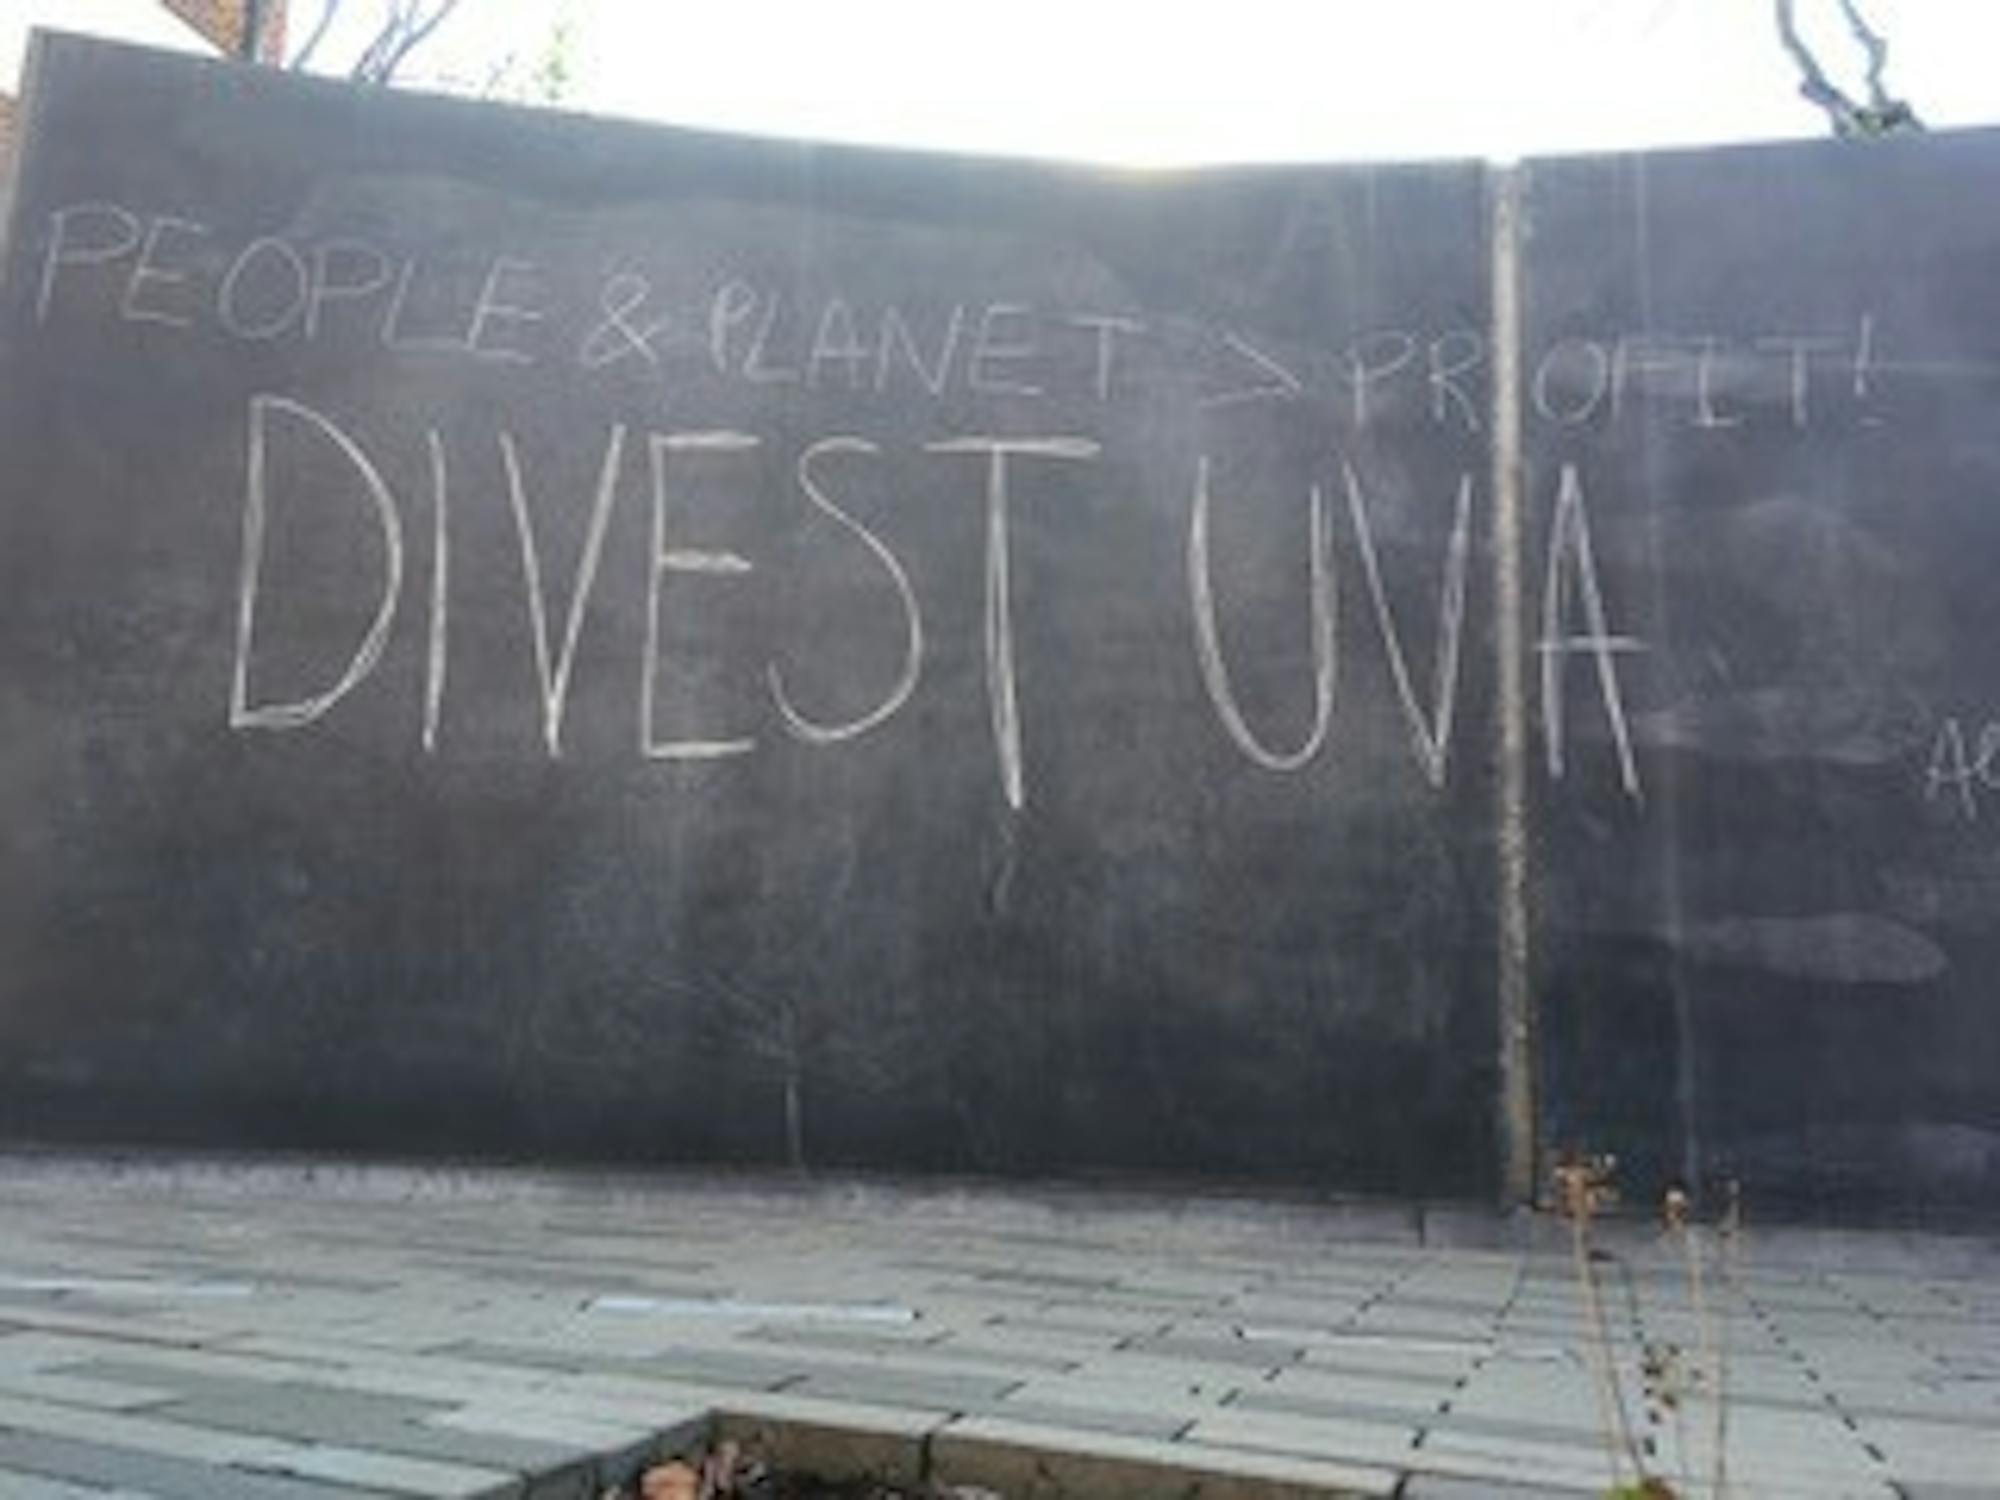 PEOPLE & PLANET > PROFIT!
DIVEST UVA